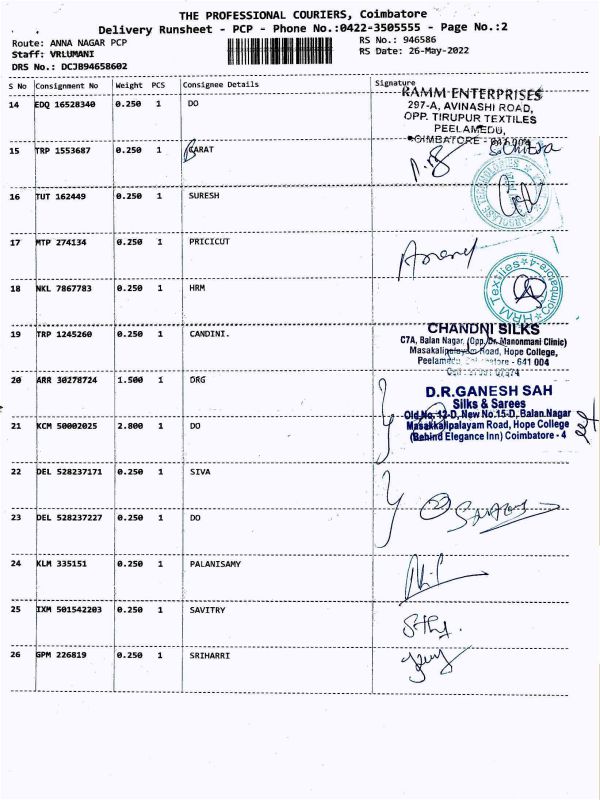 THE PROFESSIONAL COURIERS, Coimbatore
Delivery Runsheet - PCP - Phone No.:0422-3505555 - Page No.:2
Route: ANNA NAGAR PCP
RS No.: 946586
Staff: VRLUMANI
RS Date: 26-May-2022
DRS No.: DCJB94658602
S No Consignment No Weight PCS Consignee Details Signature
14 EDQ 16528340 0.250 1 DO
RAMM ENTERPRISES
297-A, AVINASHI ROAD,
OPP. TIRUPUR TEXTILES
PEELAMEDU,
COIMBATORE - 641 004
15 TRP 1553687 0.250 1 BARAT
S.Chitra
16 TUT 162449 0.250 1 SURESH
17 MTP 274134 0.250 1 PRICICUT
Anand
18 NKL 7867783 0.250 1 HRM
HRM Textiles Coimbatore-4
19 TRP 1245260 0.250 1 CANDINI.
CHANDNI SILKS
C7A, Balan Nagar, (Opp. Dr. Manonmani Clinic)
Masakalipalayam Road, Hope College,
Peelamedu, Coimbatore - 641 004
20 ARR 30278724 1.500 1 DRG
D.R.GANESH SAH
Silks & Sarees
Old.No. 12-D, New No.15-D, Balan Nagar
Masakkalipalayam Road, Hope College
(Behind Elegance Inn) Coimbatore - 4
21 KCM 50002025 2.800 1 DO
22 DEL 528237171 0.250 1 SIVA
23 DEL 528237227 0.250 1 DO
24 KLM 335151 0.250 1 PALANISAMY
25 IXM 501542203 0.250 1 SAVITRY
26 GPM 226819 0.250 1 SRIHARRI